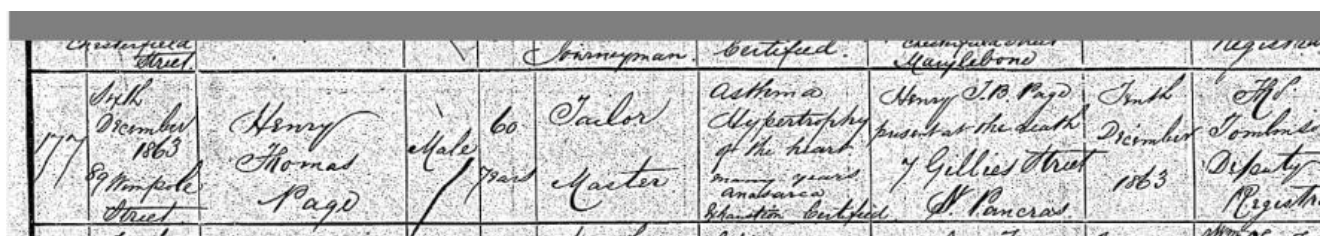 Chesterfield
Street
Journeyman
Certified.
Marylebone
177
Sixth
December
1863
59 Wimpole
Street
Henry
Thomas
Page
Male
60
years
Tailor
Master
Asthma
Hypertrophy
of the heart
many years
Anasarca
Exhaustion Certified
Henry J.B. Page
present at the death
7 Gillies Street
St. Pancras
Tenth
December
1863
Thos.
Tomlinso
Deputy
Registra